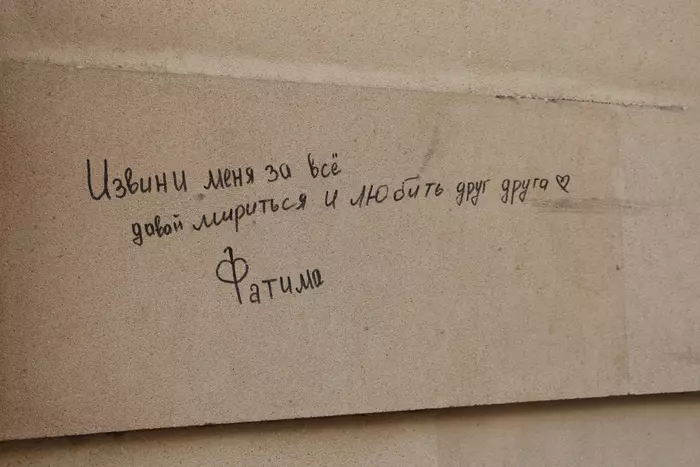 Извини меня за всё
давай мириться и любить друг друга ♡
Фатима